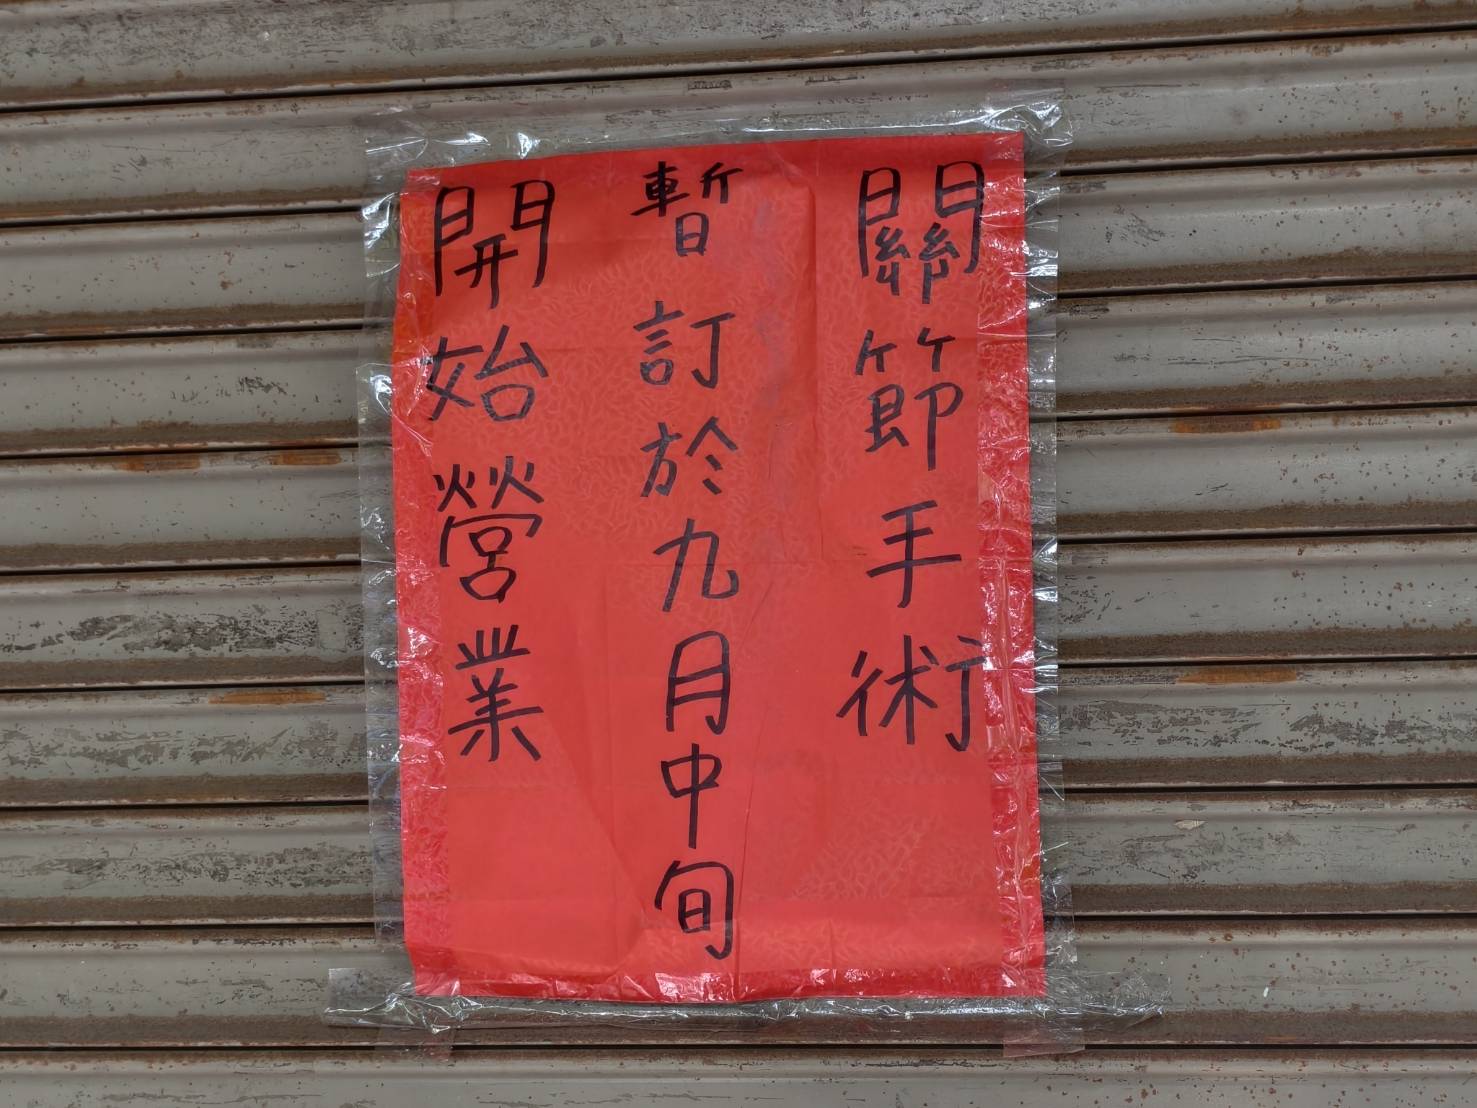 關節手術
暫訂於九月中旬
開始營業